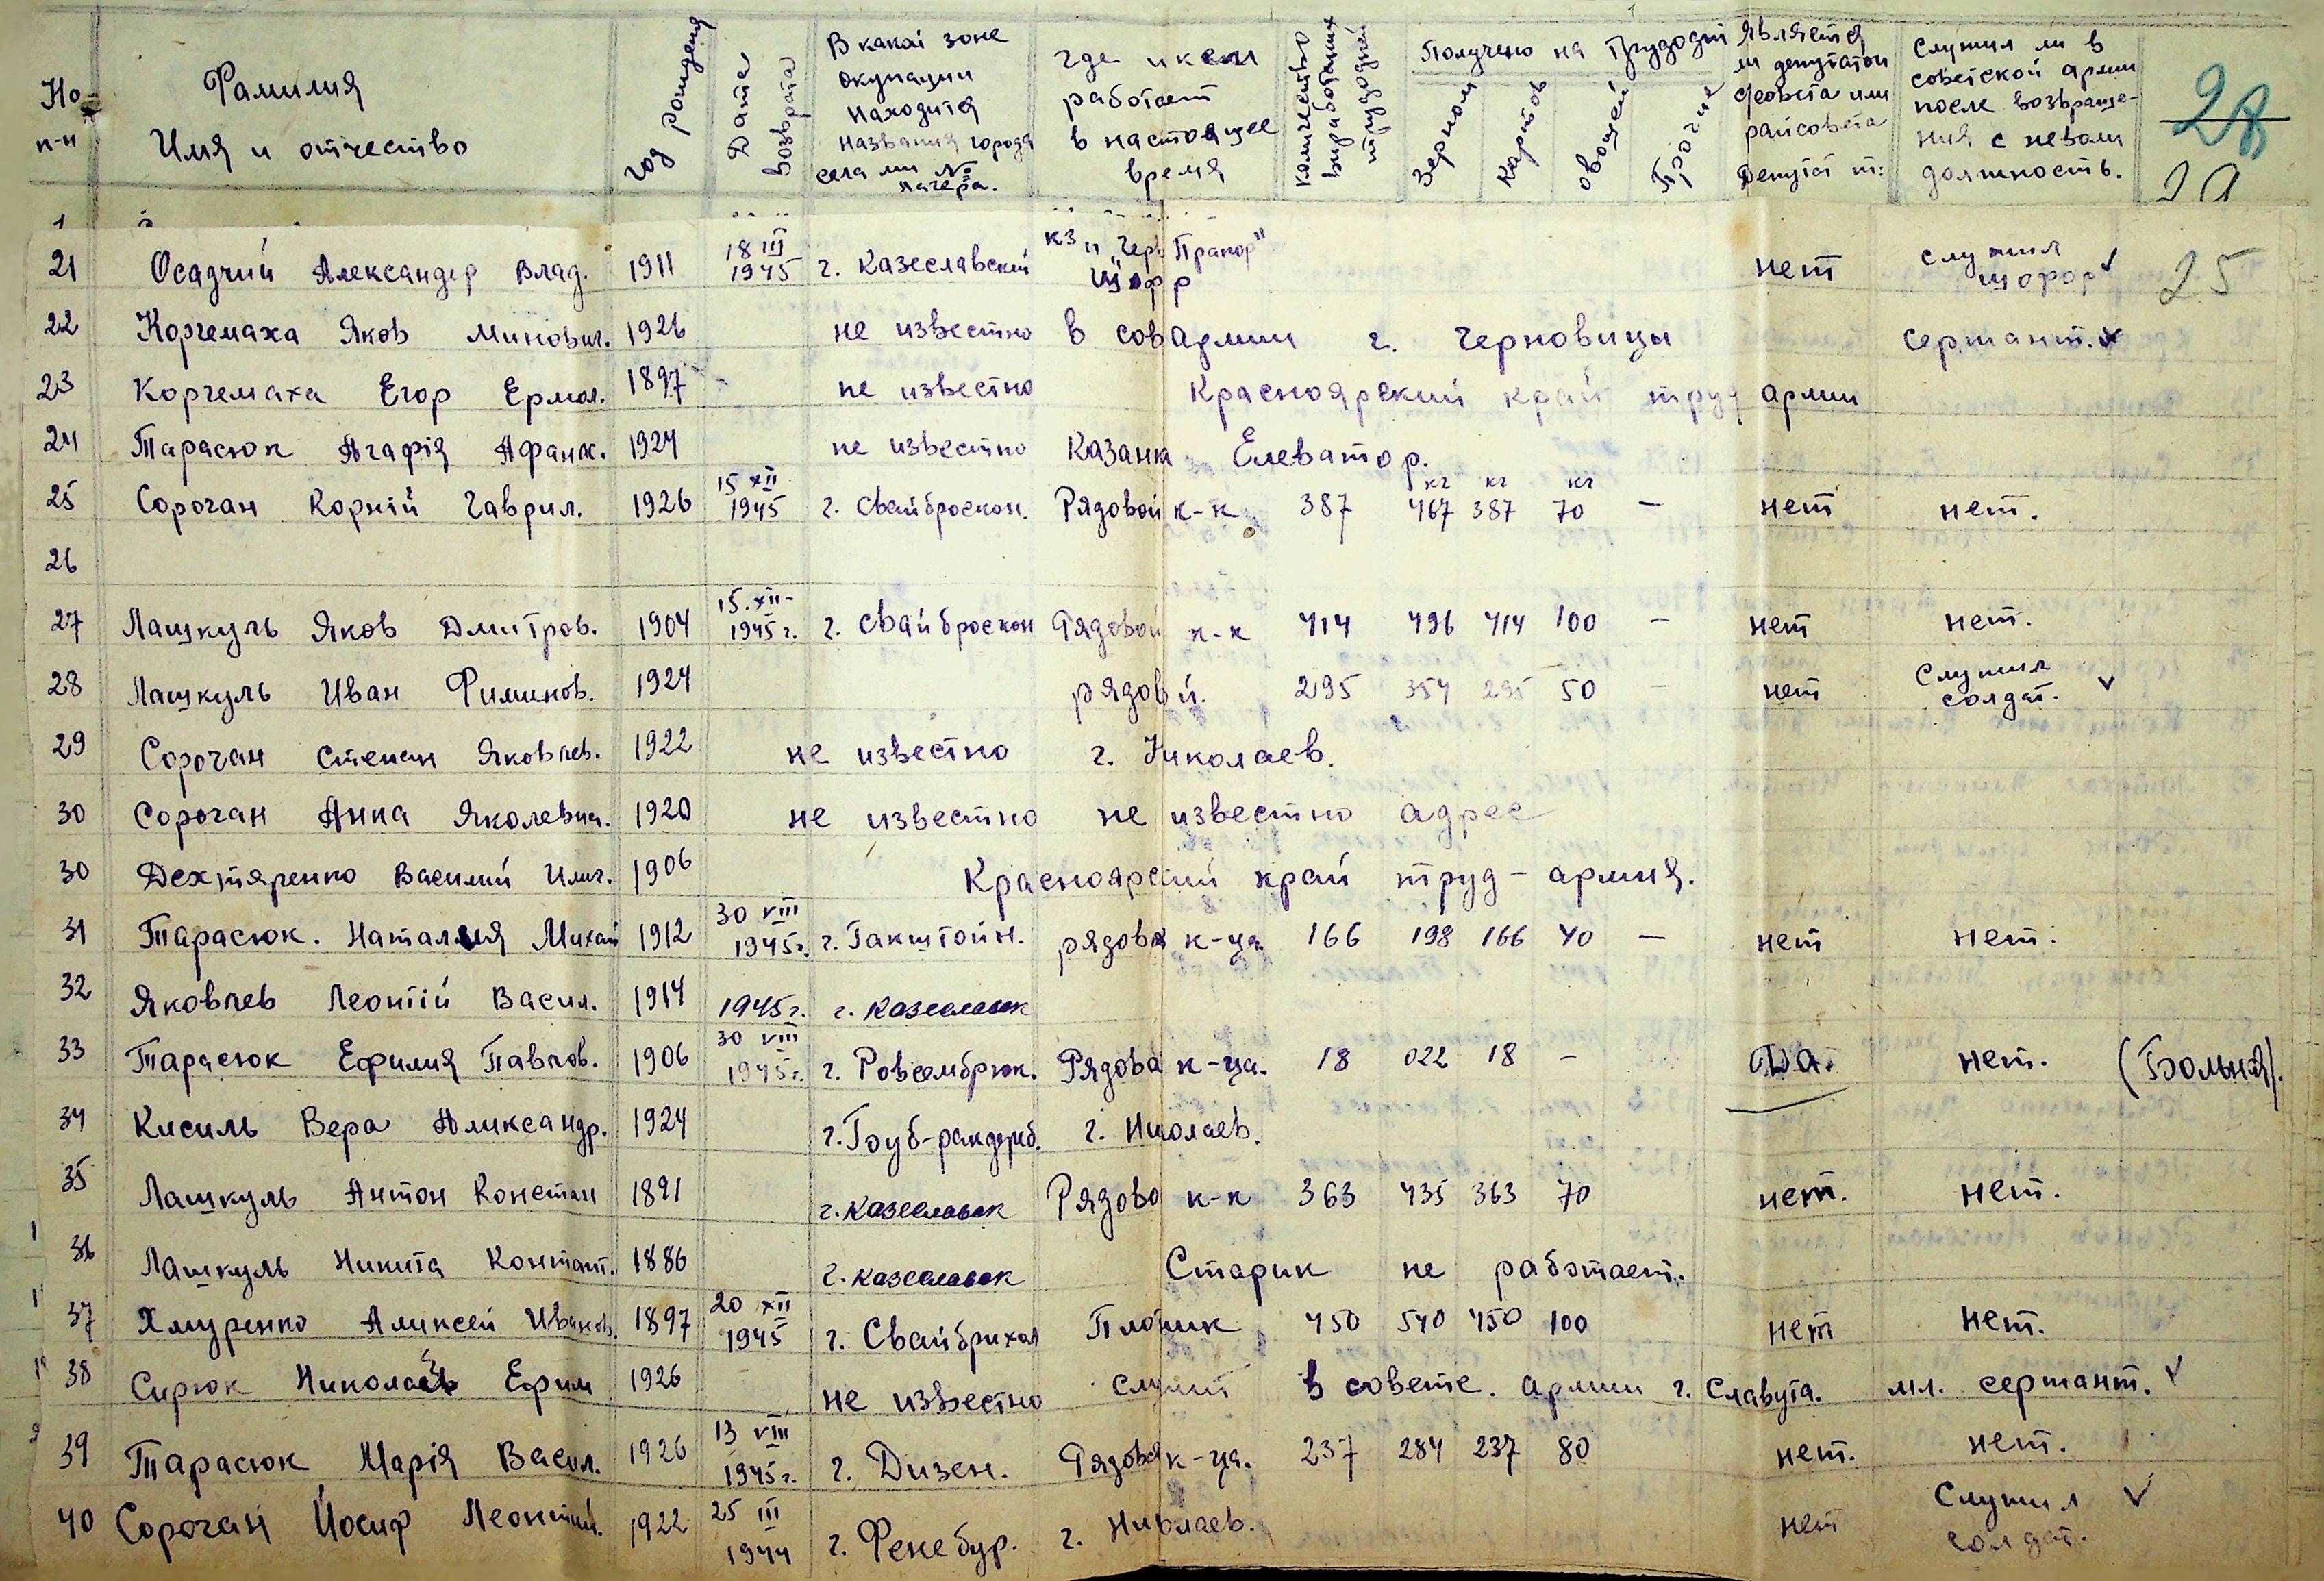 No п-п
Фамилия
Имя и отчество
год рождения
Дата возврата
В какой зоне
окупации
находится
названия города
села или №
лагеря.
где и кем
работает
в настоящее
время
количество
выработаних
трудодней
Получено на трудодни
Зерном
Картов
овощей
Прочих
Является
ли депутатом
с/совета или
райсовета
Депутат т:
Служил ли в
советской армии
после возвраще-
ния с неволи
должность.
28
21 Осадчий Александер Влад. 1911 18 III 1945 г. Казеславский кз „Черв Прапор" Шофр нет служил шофор ✓ 25
22 Корчемаха Яков Минович. 1926 не известно в сов Армии г. Черновицы сержант.
23 Корчемаха Егор Ермол. 1897 не известно Красноярский край труд армии
24 Тарасюк Агафія Афанас. 1924 не известно Казанка Елеватор.
25 Сорочан Корній Гаврил. 1926 15 XII 1945 г. Свайброскон. Рядовой к-к 387 кг 467 кг 387 кг 70 — нет нет.
26
27 Лашкуль Яков Дмитров. 1904 15.XII- 1945 г. г. Свайброскон Рядовой к-к 414 496 414 100 — нет нет.
28 Лашкуль Иван Филимов. 1924 рядовй. 295 354 295 50 — нет Служил солдат. ✓
29 Сорочан Степан Яковлев. 1922 не известно г. Николаев.
30 Сорочан Анна Яколевна. 1920 не известно не известно адрес
30 Дехтяренко Василий Илич. 1906 Красноярский край труд-армия.
31 Тарасюк. Наталия Михай 1912 30 VIII 1945 г. г. Гакштойн. рядова к-ца 166 198 166 40 — нет нет.
32 Яковлев Леонтій Васил. 1914 1945 г. г. Казеславск
33 Тарасюк Ефилия Павлов. 1906 30 VIII 1945 г. г. Ровсембрюк. Рядова к-ца. 18 022 18 — Да. нет. (Больная).
34 Кисиль Вера Аликсандр. 1924 г. Николаев.
35 Лашкуль Антон Констан 1891 г. Казеславск Рядово к-к 363 435 363 70 нет. нет.
36 Лашкуль Никита Контант. 1886 г. Казеславск Старик не работает.
37 Хмуренко Аликсей Иванов. 1897 20 XII 1945 г. Свайбрихал Плотник 450 540 450 100 нет нет.
38 Сирюк Николай Ефим 1926 не известно служит в совете. армии г. Славута. мл. сержант. ✓
39 Тарасюк Марія Васил. 1926 13 VIII 1945 г. г. Дизен. Рядовая к-ца. 237 284 237 80 нет. нет.
40 Сорочан Йосиф Леонтий. 1922 25 III 1944 г. Фекебур. г. Николаев. нет Служил солдат. ✓